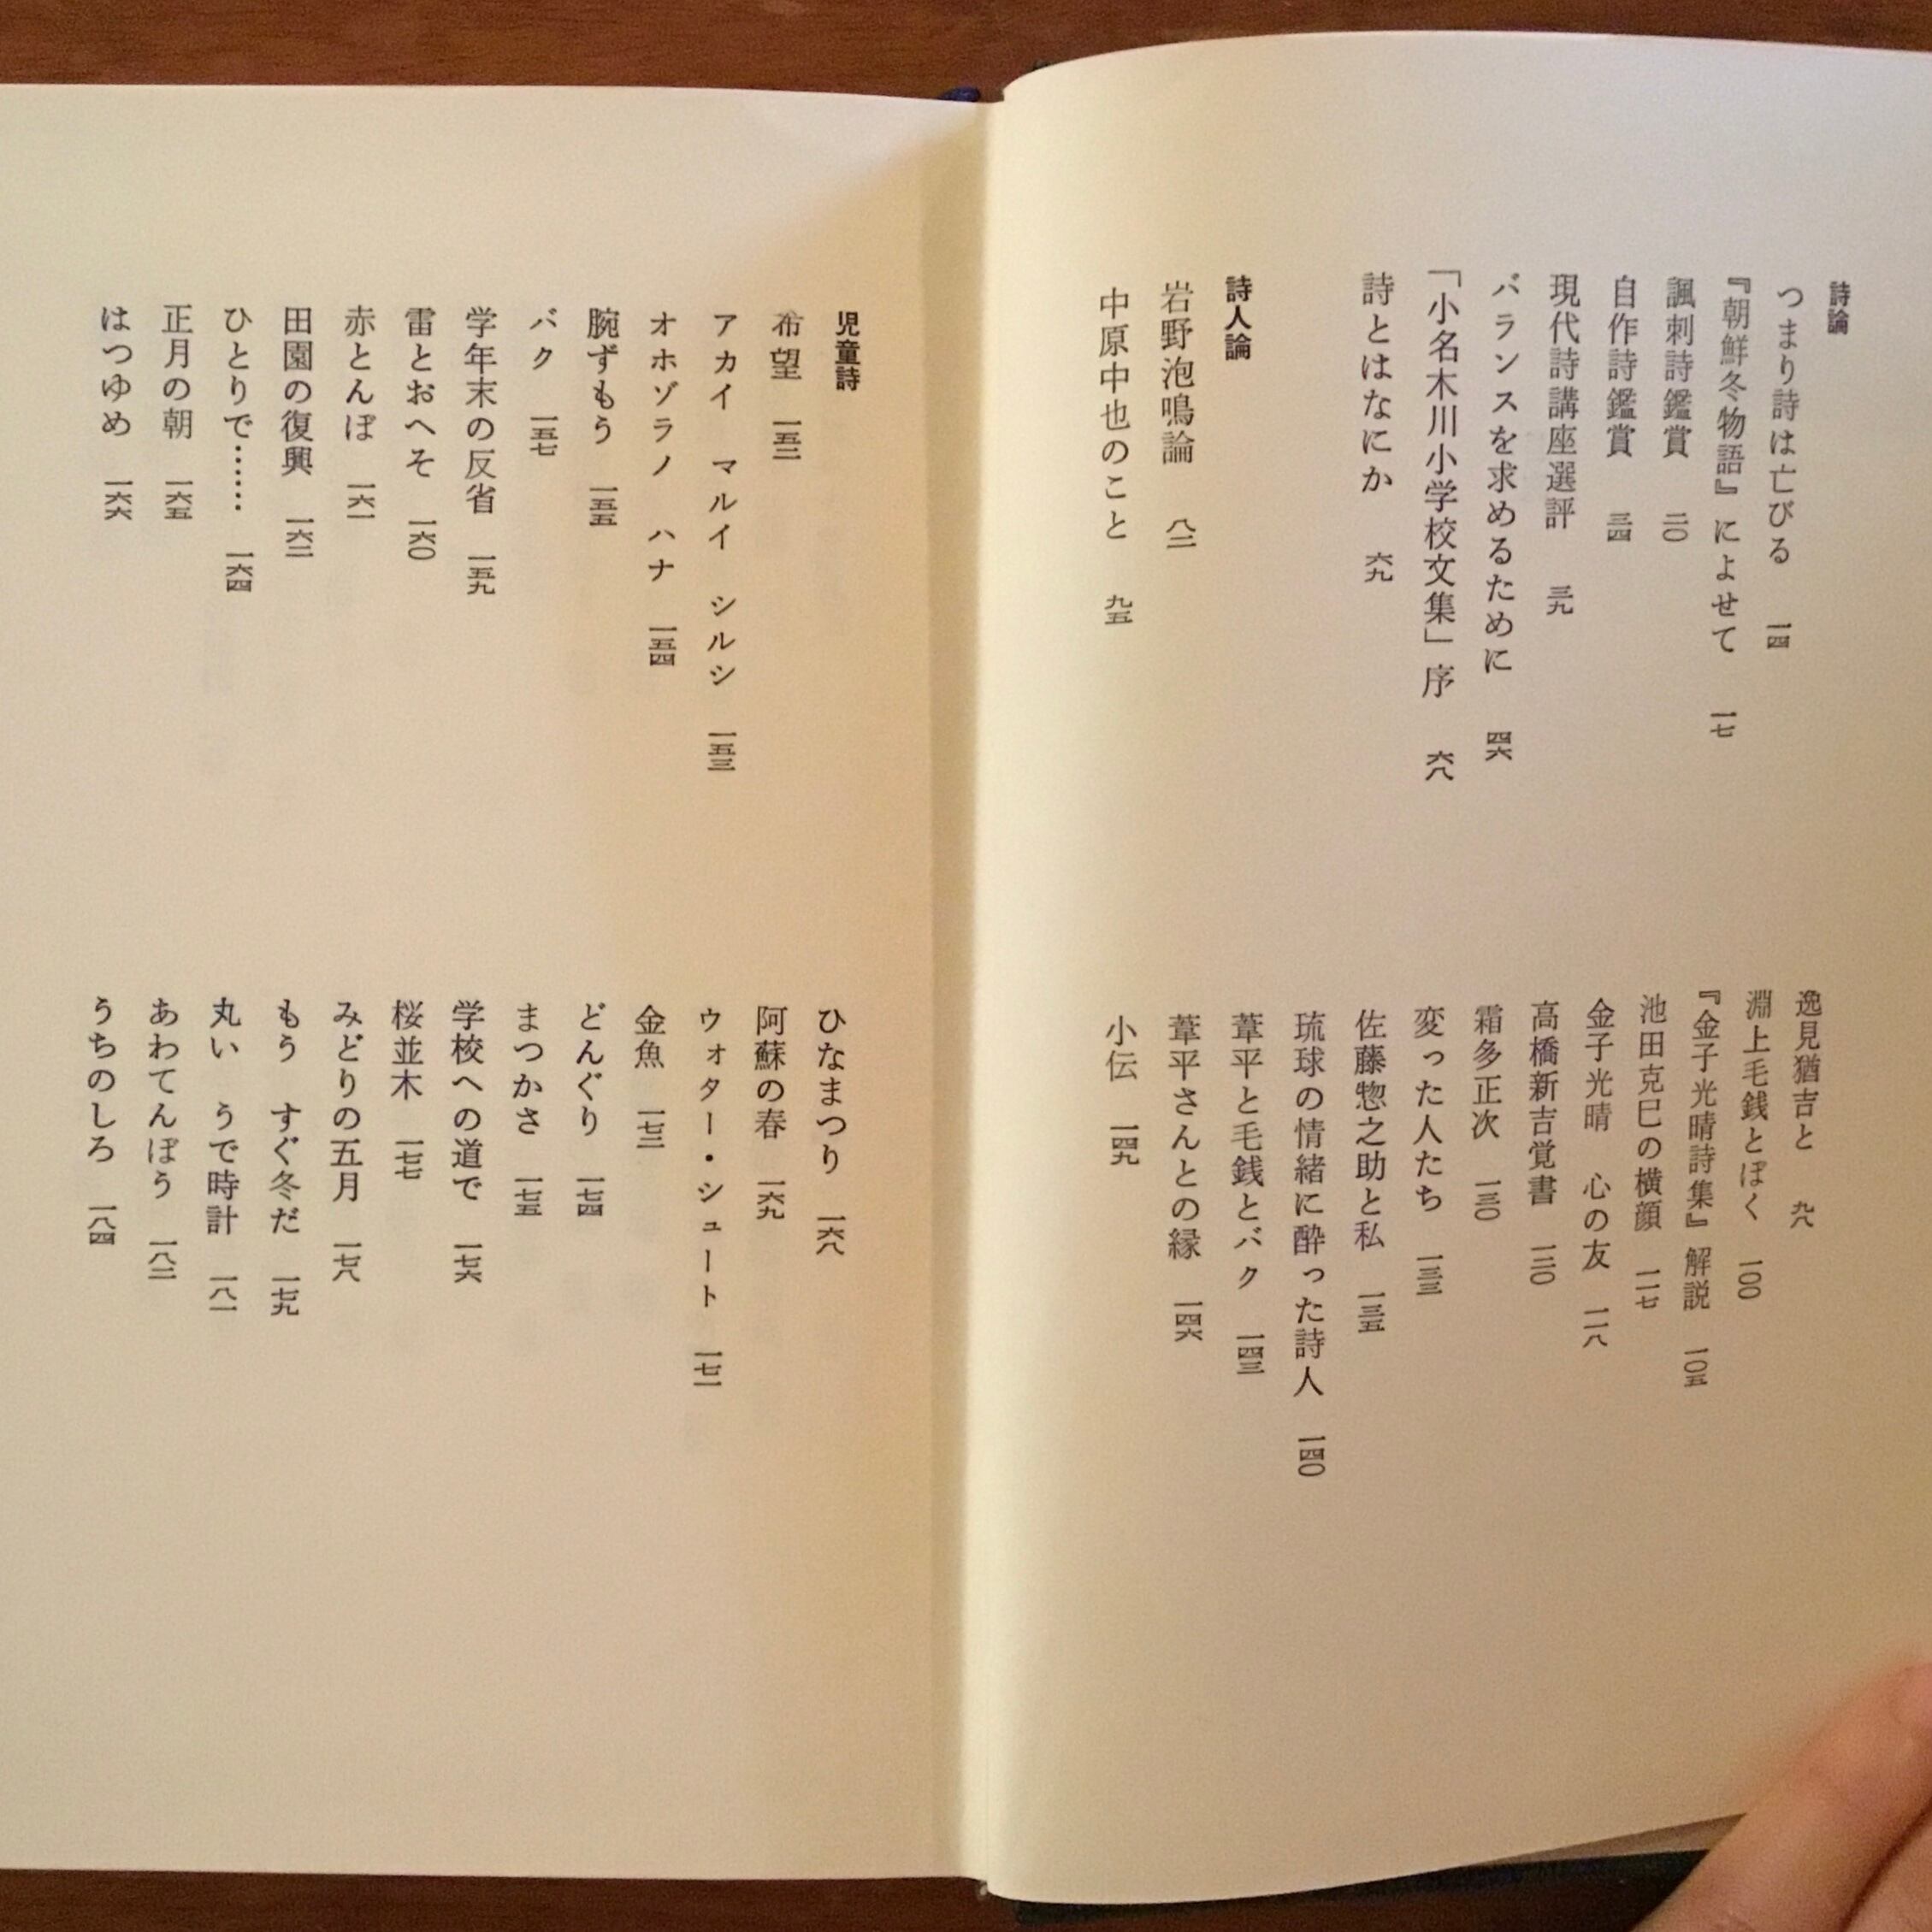 詩論
つまり詩は亡びる 一四
『朝鮮冬物語』によせて 一七
諷刺詩鑑賞 二〇
自作詩鑑賞 三四
現代詩講座選評 三九
バランスを求めるために 四六
「小名木川小学校文集」序 六八
詩とはなにか 六九
詩人論
岩野泡鳴論 八二
中原中也のこと 九五
逸見猶吉と 九八
淵上毛銭とぼく 一〇〇
『金子光晴詩集』解説 一〇五
池田克巳の横顔 一一七
金子光晴 心の友 一一八
高橋新吉覚書 一二〇
霜多正次 一三〇
変った人たち 一三三
佐藤惣之助と私 一三五
琉球の情緒に酔った詩人 一四〇
葦平と毛銭とバク 一四三
葦平さんとの縁 一四六
小伝 一四九
児童詩
希望 一五二
アカイ マルイ シルシ 一五三
オホゾラノ ハナ 一五四
腕ずもう 一五五
バク 一五七
学年末の反省 一五九
雷とおへそ 一六〇
赤とんぼ 一六一
田園の復興 一六二
ひとりで…… 一六四
正月の朝 一六五
はつゆめ 一六六
ひなまつり 一六八
阿蘇の春 一六九
ウォーター・シュート 一七一
金魚 一七二
どんぐり 一七四
まつかさ 一七五
学校への道で 一七六
桜並木 一七七
みどりの五月 一七八
もう すぐ冬だ 一七九
丸い うで時計 一八一
あわてんぼう 一八二
うちのしろ 一八四